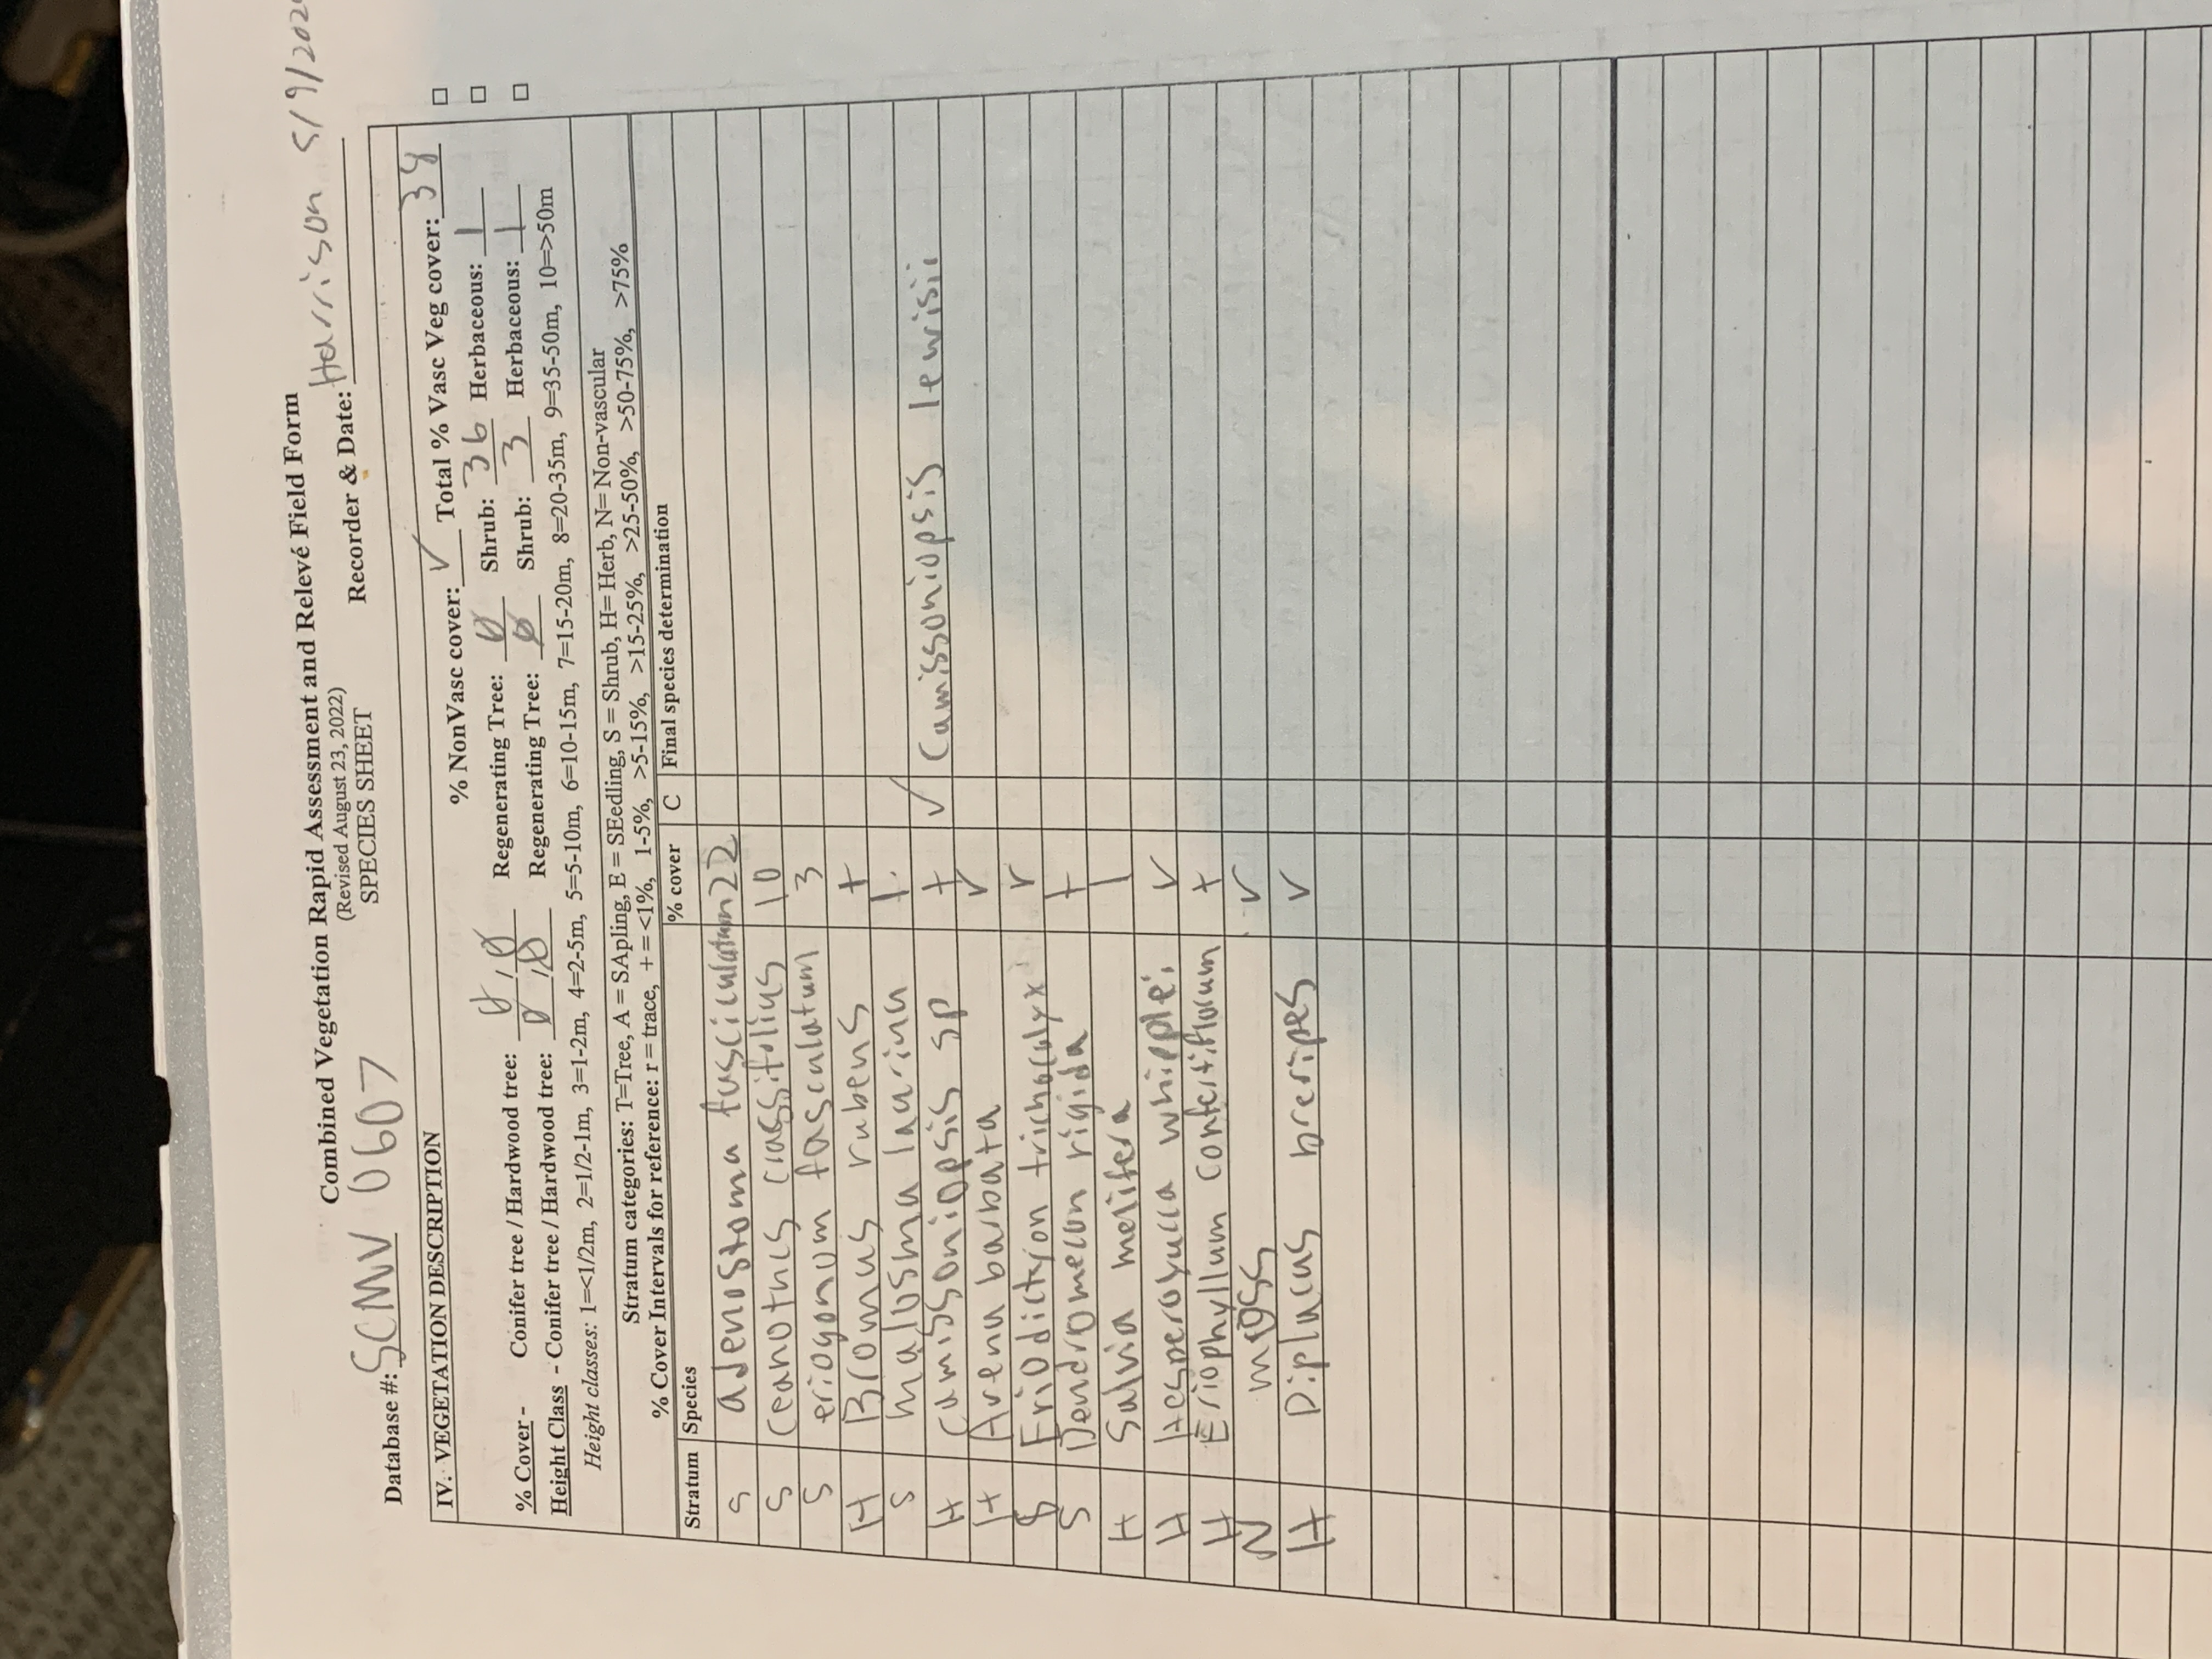 Combined Vegetation Rapid Assessment and Relevé Field Form
(Revised August 23, 2022)
SPECIES SHEET
Database #: SCMV 0607 Recorder & Date: Harrison 5/9/202
IV. VEGETATION DESCRIPTION
% NonVasc cover: r Total % Vasc Veg cover: 38 □
% Cover - Conifer tree / Hardwood tree: 0 / 0 Regenerating Tree: 0 Shrub: 36 Herbaceous: 1 □
Height Class - Conifer tree / Hardwood tree: 0 / 0 Regenerating Tree: 0 Shrub: 3 Herbaceous: 1 □
Height classes: 1=<1/2m, 2=1/2-1m, 3=1-2m, 4=2-5m, 5=5-10m, 6=10-15m, 7=15-20m, 8=20-35m, 9=35-50m, 10=>50m
Stratum categories: T=Tree, A = SApling, E = SEedling, S = Shrub, H= Herb, N= Non-vascular
% Cover Intervals for reference: r = trace, + = <1%, 1-5%, >5-15%, >15-25%, >25-50%, >50-75%, >75%
Stratum Species % cover C Final species determination
S adenostoma fusciculatum 22
S ceanothus crassifolius 10
S eriogonum fasculatum 3
H Bromus rubens +
S malosma laurina 1
H camissoniopsis sp + ✓ Camissoniopsis lewisii
H Avena barbata r
S Eriodictyon trichocalyx r
S Dendromecon rigida +
H Salvia melifera 1
H Hesperoyucca whipplei r
H Eriophyllum confertiflorum +
N moss r
H Diplacus breripes r